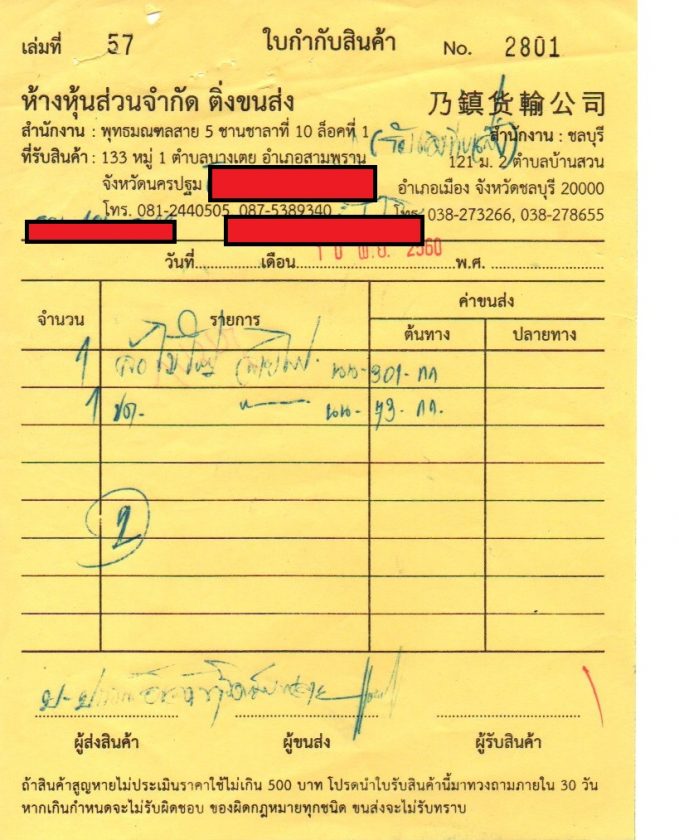 เล่มที่ 57 ใบกำกับสินค้า No. 2801
ห้างหุ้นส่วนจำกัด ติ่งขนส่ง 乃鎮货輸公司
สำนักงาน : พุทธมณฑลสาย 5 ชานชาลาที่ 10 ล็อคที่ 1 สำนักงาน : ชลบุรี
ที่รับสินค้า : 133 หมู่ 1 ตำบลบางเตย อำเภอสามพราน 121 ม. 2 ตำบลบ้านสวน
จังหวัดนครปฐม อำเภอเมือง จังหวัดชลบุรี 20000
โทร. 081-2440505, 087-5389340 โทร. 038-273266, 038-278655
10 พ.ย. 2560
วันที่ เดือน พ.ศ.
จำนวน รายการ ค่าขนส่ง
ต้นทาง ปลายทาง
1 นน-301-กก
1 นน-73-กก.
2
ผู้ส่งสินค้า ผู้ขนส่ง ผู้รับสินค้า
ถ้าสินค้าสูญหายไม่ประเมินราคาใช้ไม่เกิน 500 บาท โปรดนำใบรับสินค้านี้มาทวงถามภายใน 30 วัน
หากเกินกำหนดจะไม่รับผิดชอบ ของผิดกฎหมายทุกชนิด ขนส่งจะไม่รับทราบ